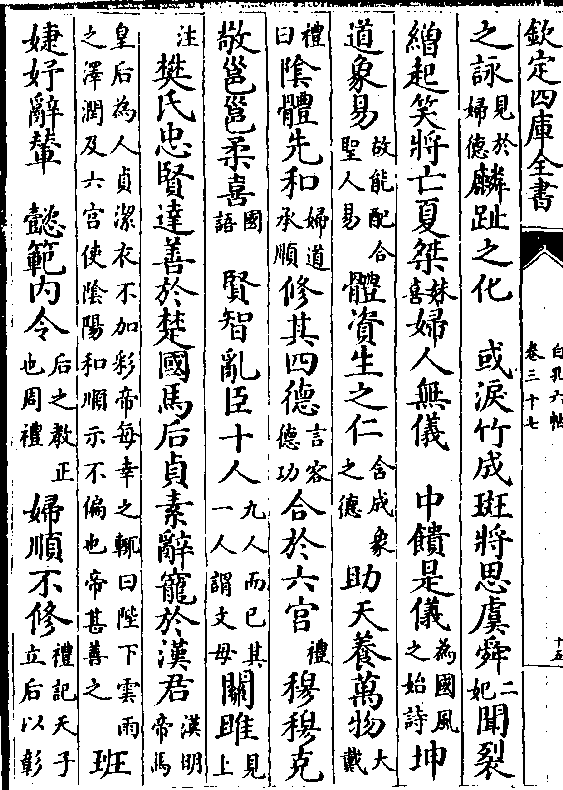 欽定四庫全書
白孔六帖
卷三十七
十五
之詠見於婦德麟趾之化　或淚竹成斑將思虞舜二妃聞裂
繒起笑將亡夏桀妹喜婦人無儀　中饋是儀為國風之始詩坤
道象易故能配合聖人易體資生之仁含成象之德助天養萬物大戴
禮曰陰體先和婦道承順修其四德言容德功合於六宮禮穆穆克
敬邕邕柔喜國語　賢智亂臣十人九人而已其一人謂文母關雎見上
注樊氏忠賢達善於楚國馬后貞素辭寵於漢君漢明帝馬
皇后為人貞潔衣不加彩帝每幸之輒曰陛下雲雨之澤潤及六宮使陰陽和順示不偏也帝甚善之班
婕妤辭輦　懿範內令后之教正也周禮　婦順不修禮記天子立后以彰